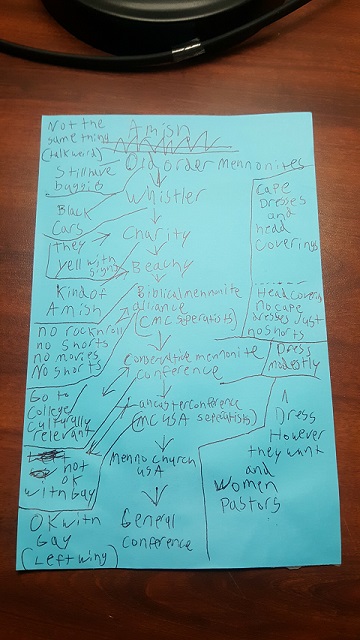 Not the
same thing
(talk weird)
Amish
Old order mennonites
Still have
buggies
Whistler
Black
Cars
Charity
they
yell with
signs
Beachy
Kind of
Amish
Biblical mennonite
alliance
(CMC seperatists)
no rocknroll
no shorts
no movies
No shorts
Conservative mennonite
conference
Go to
College
Culturally
relevant
Lancaster conference
(MC USA seperatists)
not
OK
with Gay
Menno church
USA
OK with
Gay
(Left wing)
General
conference
Cape
Dresses
and
head
coverings
Head coverings
No cape
dresses Just
no shorts
Dress
modestly
Dress
However
they want
and
Women
Pastors